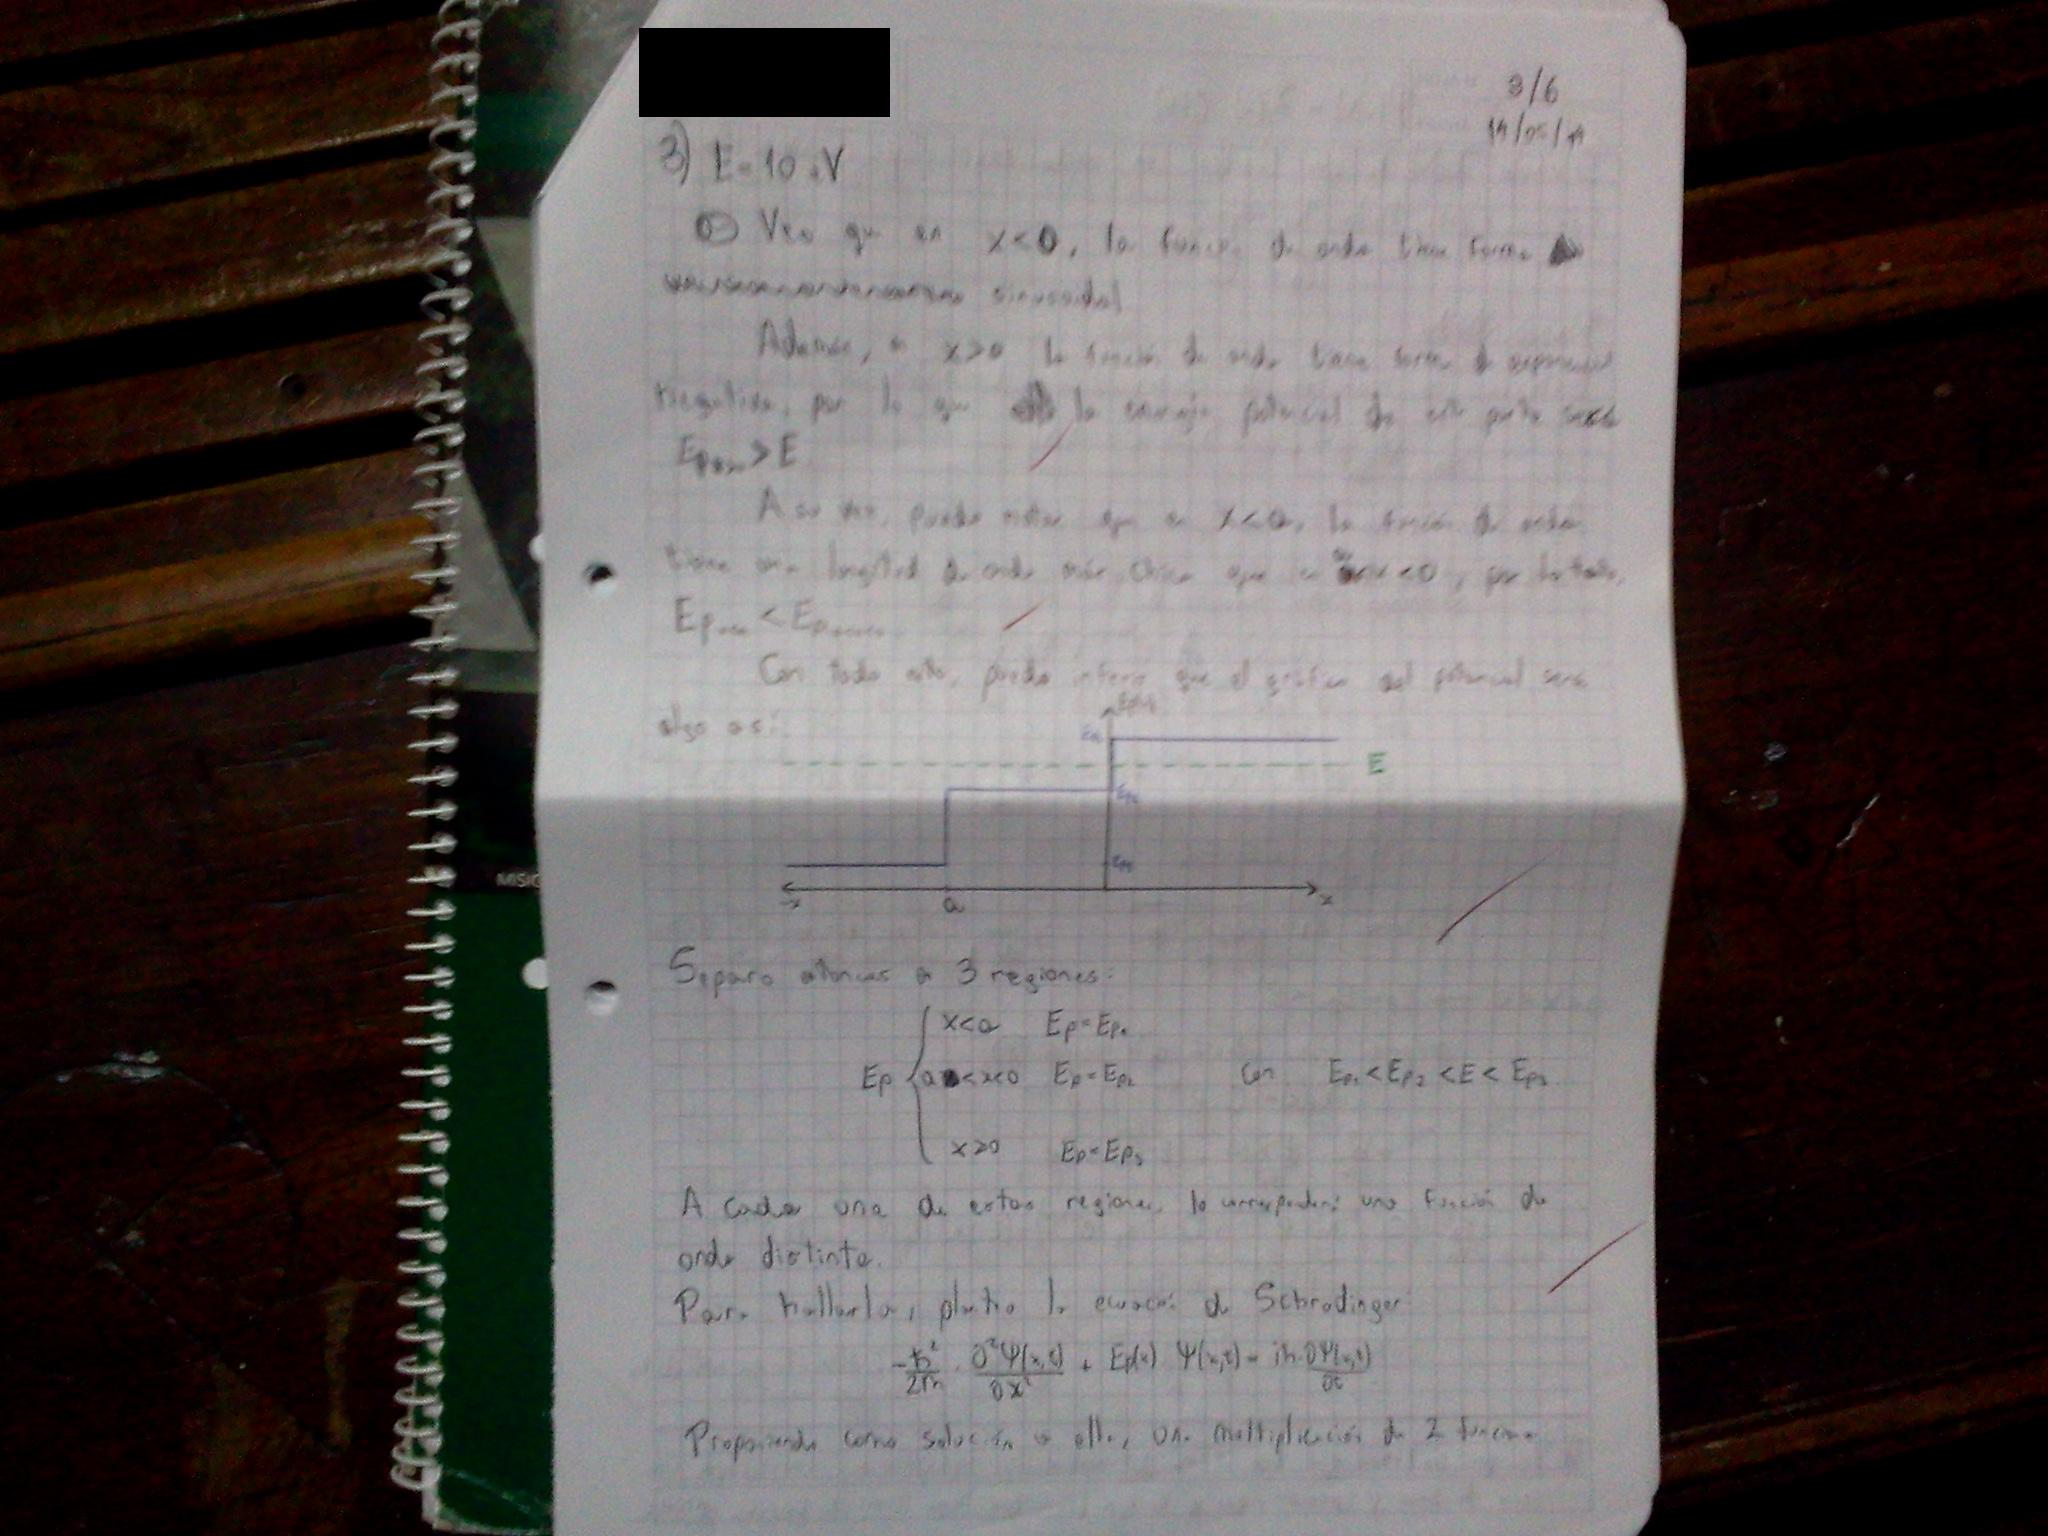 3/6
3) E=10 eV
a) Veo que en x<0, la función de onda tiene forma
sinusoidal
Además, en x>0 la función de onda tiene forma de exponencial
negativa, por lo que la energía potencial de esta parte será
Ep > E
A su vez, puedo notar que en x<a, la función de onda
tiene una longitud de onda más chica que en a<x<0, por lo tanto,
Ep < Ep
Con todo esto, puedo inferir que el gráfico del potencial será
algo así:
Ep(x)
E
Ep2
Ep1
-x a x
Separo entonces en 3 regiones:
x<a Ep=Ep1
Ep { a<x<0 Ep=Ep2 con Ep1<Ep2<E<Ep3
x>0 Ep=Ep3
A cada una de estas regiones, le corresponderá una función de
onda distinta.
Para hallarla, planteo la ecuación de Schrodinger:
-ħ²/2m · ∂²Ψ(x,t)/∂x² + Ep(x) Ψ(x,t) = iħ·∂Ψ(x,t)/∂t
Proponiendo como solución a ella, una multiplicación de 2 funciones
MISIO